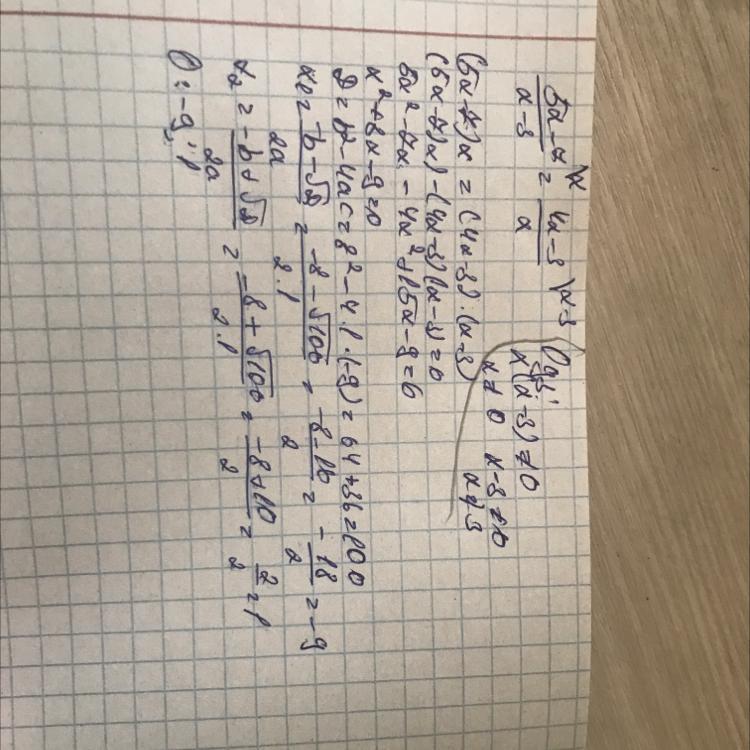 5x-7\x / x-3 = 4x-3\x-3 / x
ОДЗ:
x(x-3)≠0
x≠0 x-3≠0
x≠3
(5x-7)x = (4x-3)(x-3)
(5x-7)x)-(4x-3)(x-3)=0
5x²-7x-4x²+15x-9=0
x²+8x-9=0
D=b²-4ac=8²-4·1·(-9)=64+36=100
x₁=-b-√D / 2a = -8-√100 / 2·1 = -8-10 / 2 = -18 / 2 = -9
x₂=-b+√D / 2a = -8+√100 / 2·1 = -8+10 / 2 = 2 / 2 = 1
О: -9; 1